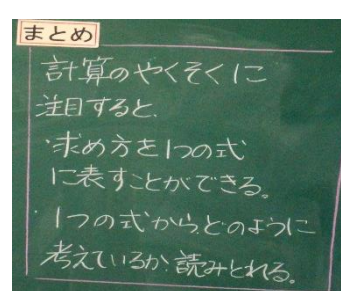 まとめ
計算のやくそくに
注目すると、
・求め方を1つの式
に表すことができる。
・1つの式からどのように
考えているか読みとれる。